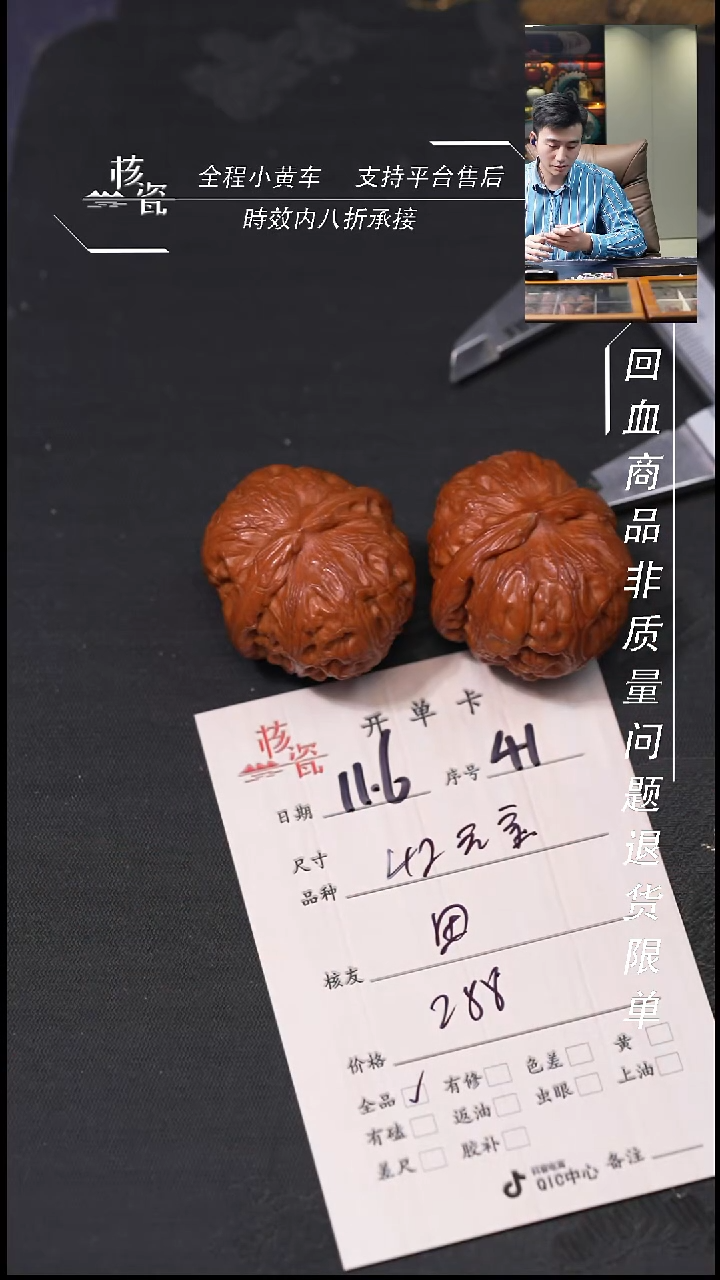 核瓷
全程小黄车 支持平台售后
時效内八折承接
回血商品非质量问题退货限单
核瓷
开单卡
日期 11.6 序号 41
尺寸
品种 42元宝
核友 团
价格 288
全品 ✓ 有修 色差 黄
有磕 返油 虫眼 上油
差尺 胶补
抖音电商
QIC中心 备注